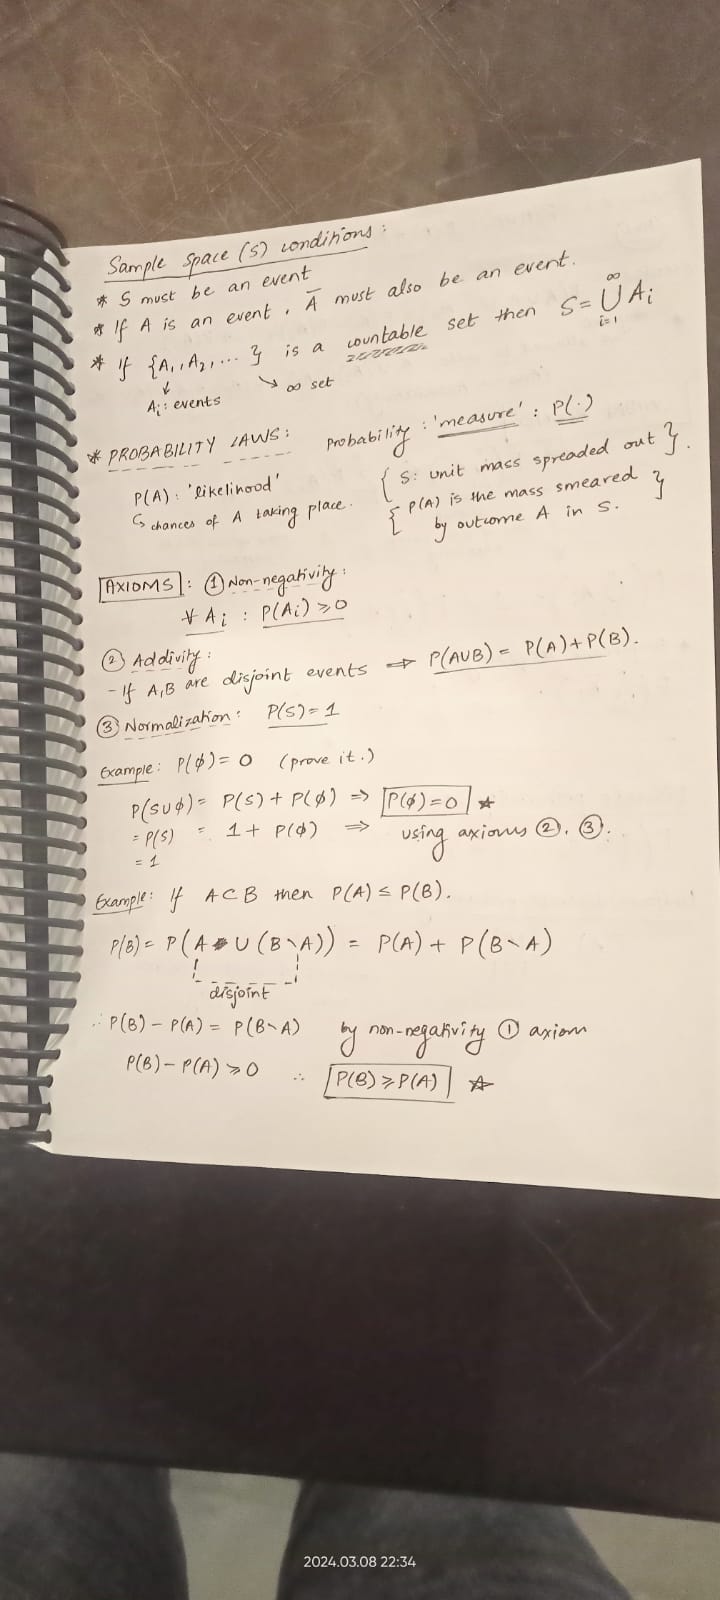 Sample Space (S) conditions :
* S must be an event
* If A is an event, A̅ must also be an event.
* If {A₁, A₂, ... } is a countable set then S = ⋃ᵢ₌₁^∞ Aᵢ
Aᵢ : events
∞ set
* PROBABILITY LAWS : Probability : 'measure' : P(·)
P(A) : 'likelihood'
↳ chances of A taking place.
{ S : unit mass spreaded out }.
{ P(A) is the mass smeared }
by outcome A in S.
AXIOMS : ① Non-negativity :
∀ Aᵢ : P(Aᵢ) ≥ 0
② Addivity :
- If A,B are disjoint events ⇒ P(A∪B) = P(A)+P(B).
③ Normalization : P(S) = 1
Example : P(ϕ) = 0 (prove it.)
P(S∪ϕ) = P(S) + P(ϕ) ⇒ P(ϕ) = 0 ☆
= P(S) = 1 + P(ϕ) ⇒ using axioms ②, ③.
= 1
Example : If A⊂B then P(A) ≤ P(B).
P(B) = P(A ∪ (B\A)) = P(A) + P(B\A)
disjoint
∴ P(B) - P(A) = P(B\A) by non-negativity ① axiom
P(B) - P(A) ≥ 0 ∴ P(B) ≥ P(A) ☆
2024.03.08 22:34